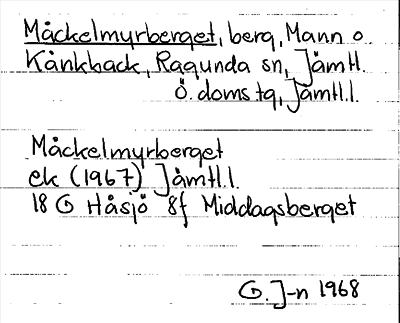 Måckelmyrberget, berg, Mann o
Kånkback, Ragunda sn, Jämtl.
Ö. doms tg, Jämtl.l.
Måckelmyrberget
ek (1967) Jämtl.l.
18 G Håsjö 8f Middagsberget
G. J-n 1968